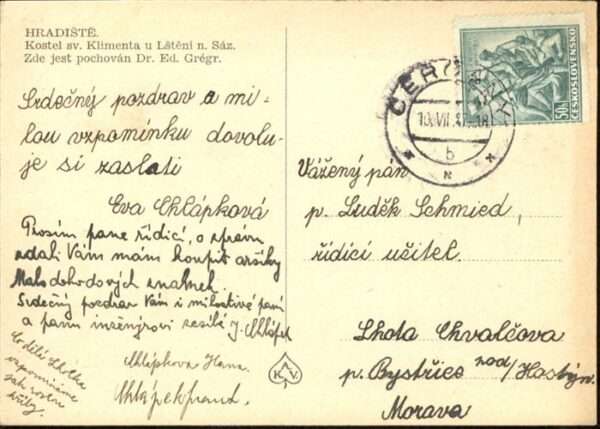 HRADIŠTĚ.
Kostel sv. Klimenta u Lštění n. Sáz.
Zde jest pochován Dr. Ed. Grégr.
Srdečný pozdrav a mi-
lou vzpomínku dovolu-
je si zaslati
Eva Chlápková
Prosím pane řídící, o zprávu
zdali Vám mám koupit aršíky
Malodohodových známek.
Srdečný pozdrav Vám i milostivé paní
a panu inženýrovi zasílá J. Chlápek
Co dělá Lhotka
vzpomínáme
jak rostou
Chlápkova Hana
K V
50h
ČESKOSLOVENSKO
ČERČANY
VII. 37
b
Vážený pán
p. Luděk Schmied,
řídící učitel.
Lhota Chvalčova
p. Bystřice nad/Hostýn.
Morava